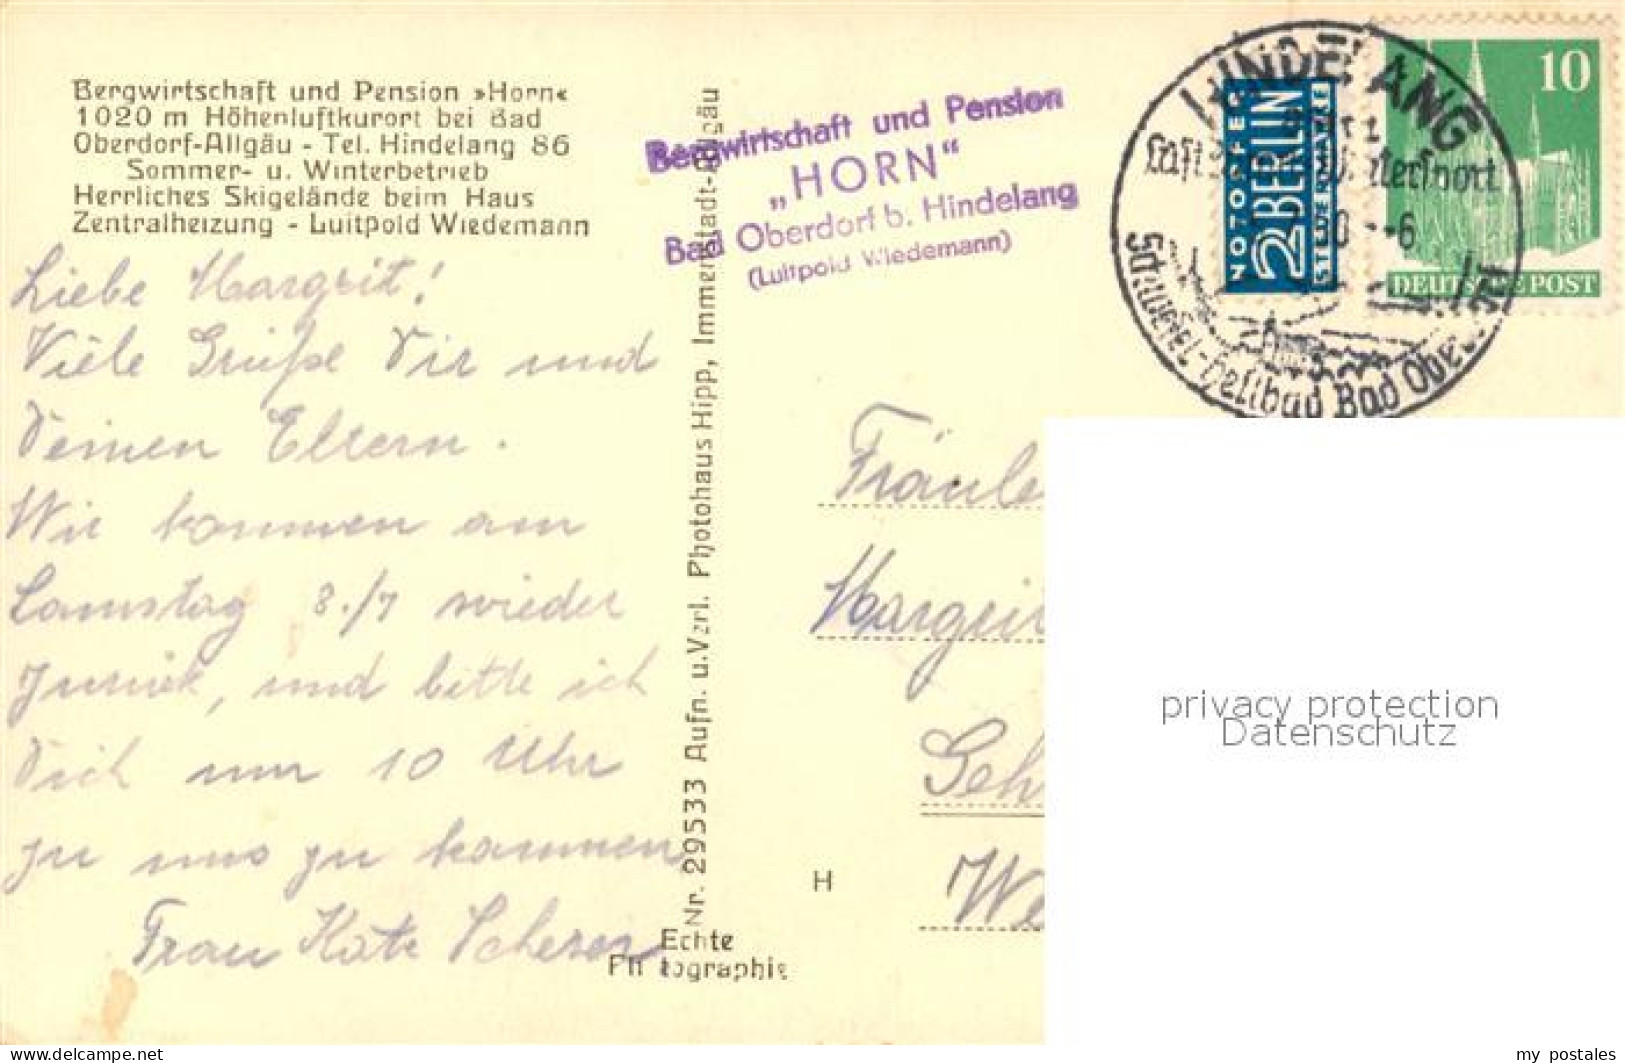 Bergwirtschaft und Pension »Horn«
1020 m Höhenluftkurort bei Bad
Oberdorf-Allgäu - Tel. Hindelang 86
Sommer- u. Winterbetrieb
Herrliches Skigelände beim Haus
Zentralheizung - Luitpold Wiedemann
Liebe Margrit!
Viele Grüße Dir und
Deinen Eltern.
Wir kommen am
Samstag 8./7 wieder
zurück, und bitte ich
Dich um 10 Uhr
zu uns zu kommen
Frau Käte Scherer
Nr. 29533 Aufn. u. Vzrl. Photohaus Hipp, Immenstadt-Allgäu
Echte
Photographie
H
Bergwirtschaft und Pension
„HORN"
Bad Oberdorf b. Hindelang
(Luitpold Wiedemann)
HINDELANG
Schwefel-Heilbad Bad Ober
NOTOPFER
2 BERLIN
STEUERMARKE
10
DEUTSCHE POST
Fräule
Margrit
Geh
We
privacy protection
Datenschutz
my postales